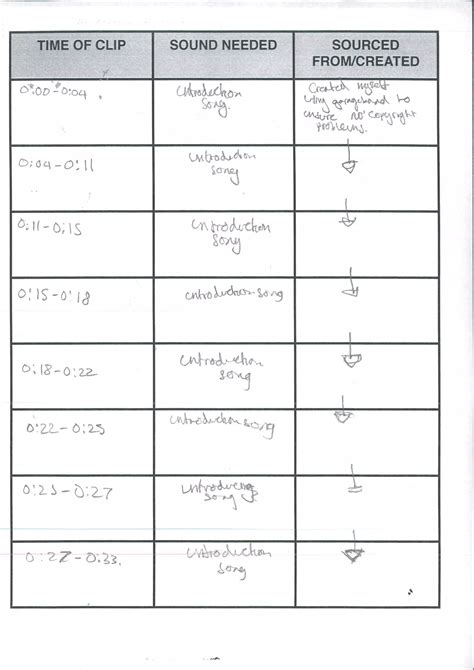 TIME OF CLIP SOUND NEEDED SOURCED
FROM/CREATED
0:00-0:04 Introduction
song.
Created myself
using garageband to
ensure no copyright
problems.
0:04-0:11 Introduction
song
0:11-0:15 Introduction
song
0:15-0:18 Introduction song
0:18-0:22 Introduction
song
0:22-0:25 Introduction song
0:25-0:27 Introduction
song
0:27-0:33. Introduction
song